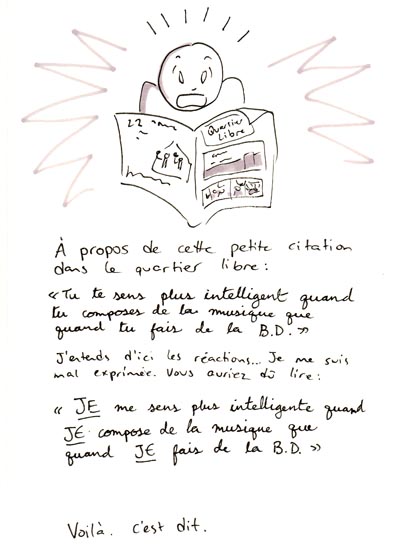 Quartier
Libre
À propos de cette petite citation
dans le quartier libre :
« Tu te sens plus intelligent quand
tu composes de la musique que
quand tu fais de la B.D. »
J'entends d'ici les réactions... Je me suis
mal exprimée. Vous auriez dû lire :
« JE me sens plus intelligente quand
JE compose de la musique que
quand JE fais de la B.D. »
Voilà. c'est dit.